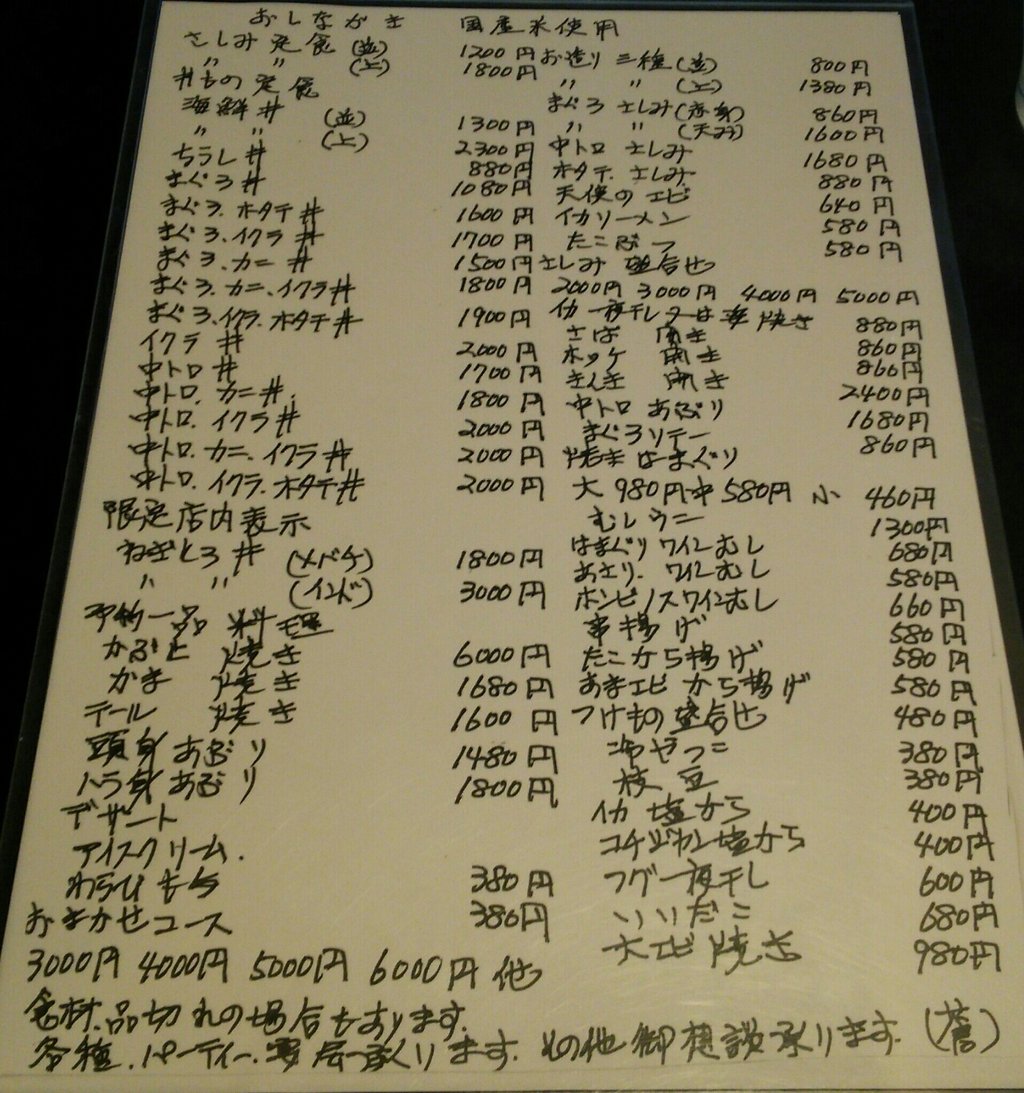 おしながき 国産米使用
さしみ定食 (並) 1200円
〃 〃 (上) 1800円
丼もの定食
海鮮丼 (並) 1300円
〃 〃 (上) 2300円
ちらし丼 880円
まぐろ丼 1080円
まぐろ.ホタテ丼 1600円
まぐろ.イクラ丼 1700円
まぐろ.カニ丼 1500円
まぐろ.カニ.イクラ丼 1800円
まぐろ.イクラ.ホタテ丼 1900円
イクラ丼 2000円
中トロ丼 1700円
中トロ.カニ丼. 1800円
中トロ.イクラ丼 2000円
中トロ.カニ.イクラ丼 2000円
中トロ.イクラ.ホタテ丼 2000円
限定店内表示
ねぎとろ丼 (メバチ) 1800円
〃 〃 (インド) 3000円
予約一品料理
かぶと焼き 6000円
かま焼き 1680円
テール焼き 1600円
頭身あぶり 1480円
ハラ身あぶり 1800円
デザート
アイスクリーム. 380円
わらびもち 380円
おまかせコース
3000円 4000円 5000円 6000円 他
お造り三種(並) 800円
〃 〃 (上) 1380円
まぐろさしみ(赤身) 860円
〃 〃 (天身) 1600円
中トロさしみ 1680円
ホタテ.さしみ 880円
天使のエビ 640円
イカソーメン 580円
たこぶつ 580円
さしみ盛合せ
2000円 3000円 4000円 5000円
イカ一夜干し又は姿焼き 880円
さば開き 860円
ホッケ開き 860円
きんき開き 2400円
中トロあぶり 1680円
まぐろソテー 860円
焼きはまぐり
大980円 中580円 小460円
むしウニ 1300円
はまぐりワインむし 680円
あさり.ワインむし 580円
ホンビノスワインむし 660円
串揚げ 580円
たこから揚げ 580円
あまエビから揚げ 580円
つけもの盛合せ 480円
冷やっこ 380円
枝豆 380円
イカ塩から 400円
コチジャン塩から 400円
フグ一夜干し 600円
いいだこ 680円
大エビ焼き 980円
食材.品切れの場合もあります.
各種.パーティー.宴会承ります.その他御相談承ります.